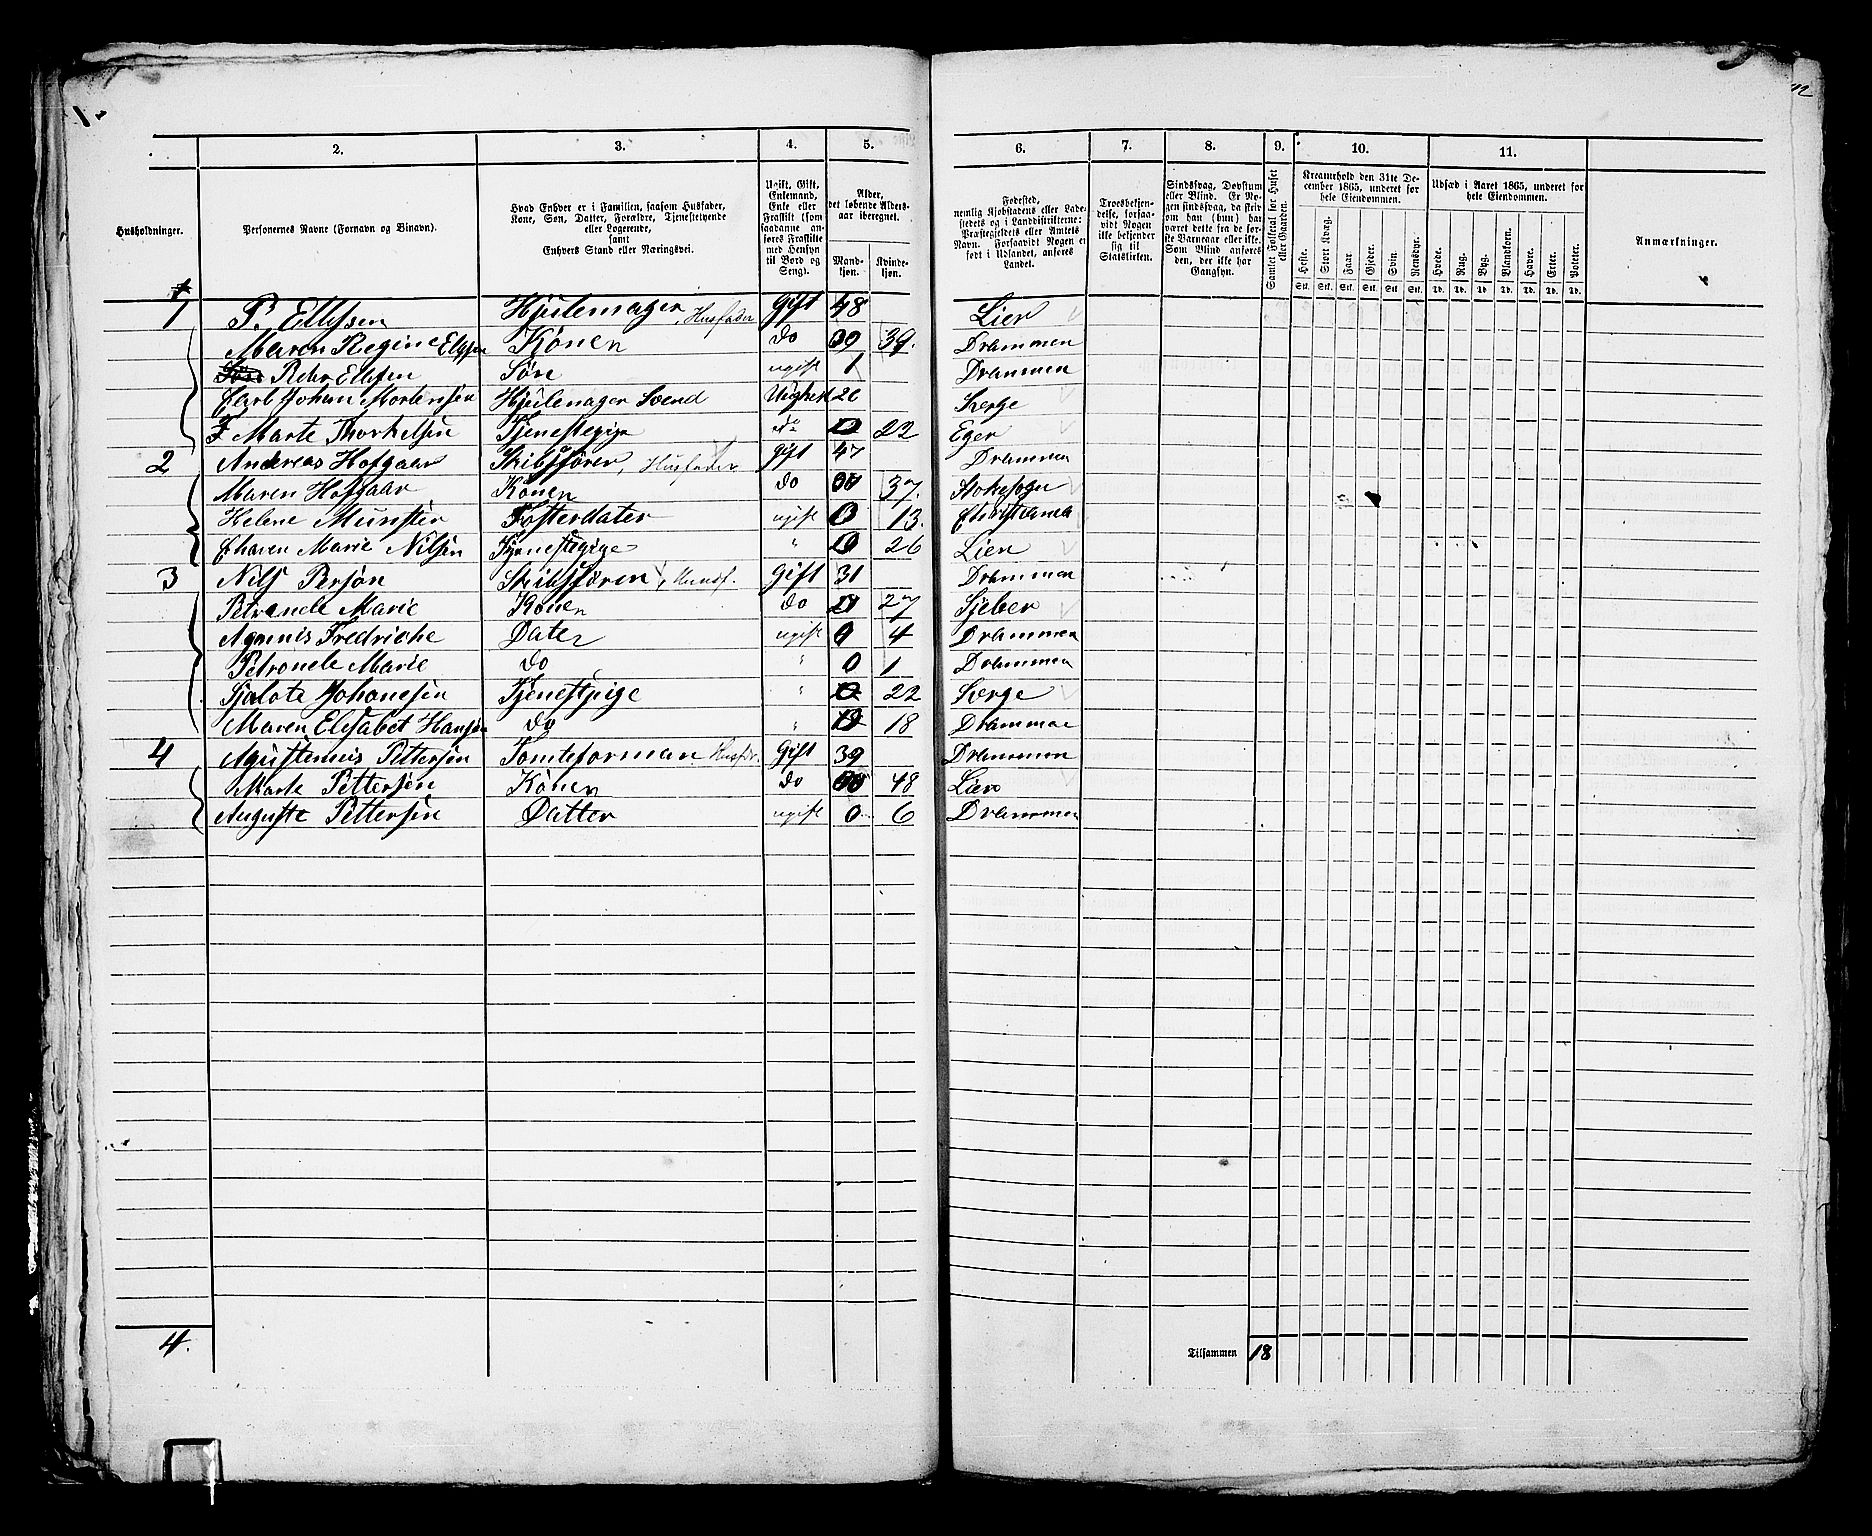 2. 3. 4. 5. 6. 7. 8. 9. 10. 11.
Husholdninger.
Personernes Navne (Fornavn og Binavn).
Hvad Enhver er i Familien, saasom Husfader, Kone, Søn, Datter, Forældre, Tjenestetyende eller Logerende, samt Enhvers Stand eller Næringsvei.
Ugift, Gift, Enkemand, Enke eller Fraskilt (som saadanne anføres Fraskilte med Hensyn til Bord og Seng).
Alder, det løbende Aldersaar iberegnet.
Mandkjøn. Kvindekjøn.
Fødested, nemlig Kjøbstadens eller Ladestedets og i Landdistrikterne: Præstegjeldets eller Amtets Navn. Forsaavidt Nogen er født i Udlandet, anføres Landet.
Troesbekjendelse, forsaavidt Nogen ikke bekjender sig til Statskirken.
Sindssvag, Døvstum eller Blind. Er Nogen sindssvag, da skriv om han (hun) har været dette fra de første Barneaar eller ikke. Som Blind anføres den, der ikke har Gangsyn.
Samlet Folketal for Huset eller Gaarden.
Kreaturhold den 31te December 1865, underet for hele Eiendommen.
Heste. Stort Kvæg. Faar. Gjeder. Svin. Rensdyr.
Udsæd i Aaret 1865, underet for hele Eiendommen.
Hvede. Rug. Byg. Blandkorn. Havre. Erter. Poteter.
Anmærkninger.
Stk. Stk. Stk. Stk. Stk. Stk. Td. Td. Td. Td. Td. Td. Td.
1 P. Ellefsen Hjulemager, Husfader Gift 48 Lier
Maren Regine Ellefsen Konen do 39. Drammen
Peder Ellefsen Søn ugift 1 Drammen
Carl Johan Mortensen Hjulemager Svend Ughift 20 Sverge
Marte Thorkelsen Tjenestegige do 22 Eger
2 Andreas Hofgaar Skibsfører, Husfader gift 47 Drammen
Maren Hofgaar Konen Do 37. Stokesogn
Helene Munster Fosterdater ugift 0 13. Christiania
Charen Marie Nilsen Tjenestegige " 26 Lien
3 Nils Persøn Skibsføren, Huusf. Gift 31 Drammen
Petronele Marie Konen Do 27
Agnnis Fredriche Dater ugift 4 Drammen
Petronele Marie do " 0 1 Drammen
Sjalote Johanesen Tjenestpige " 22 Sverge
Maren Elisabet Hansen do " 18 Drammen
4 Agustinius Pettersen Tomteforman Husfdr. Gift 39 Drammen
Marte Pettersøn Konen do 48 Lier
Auguste Pettersen Datter ugift 0 6 Drammen
4.
Tilsammen 18